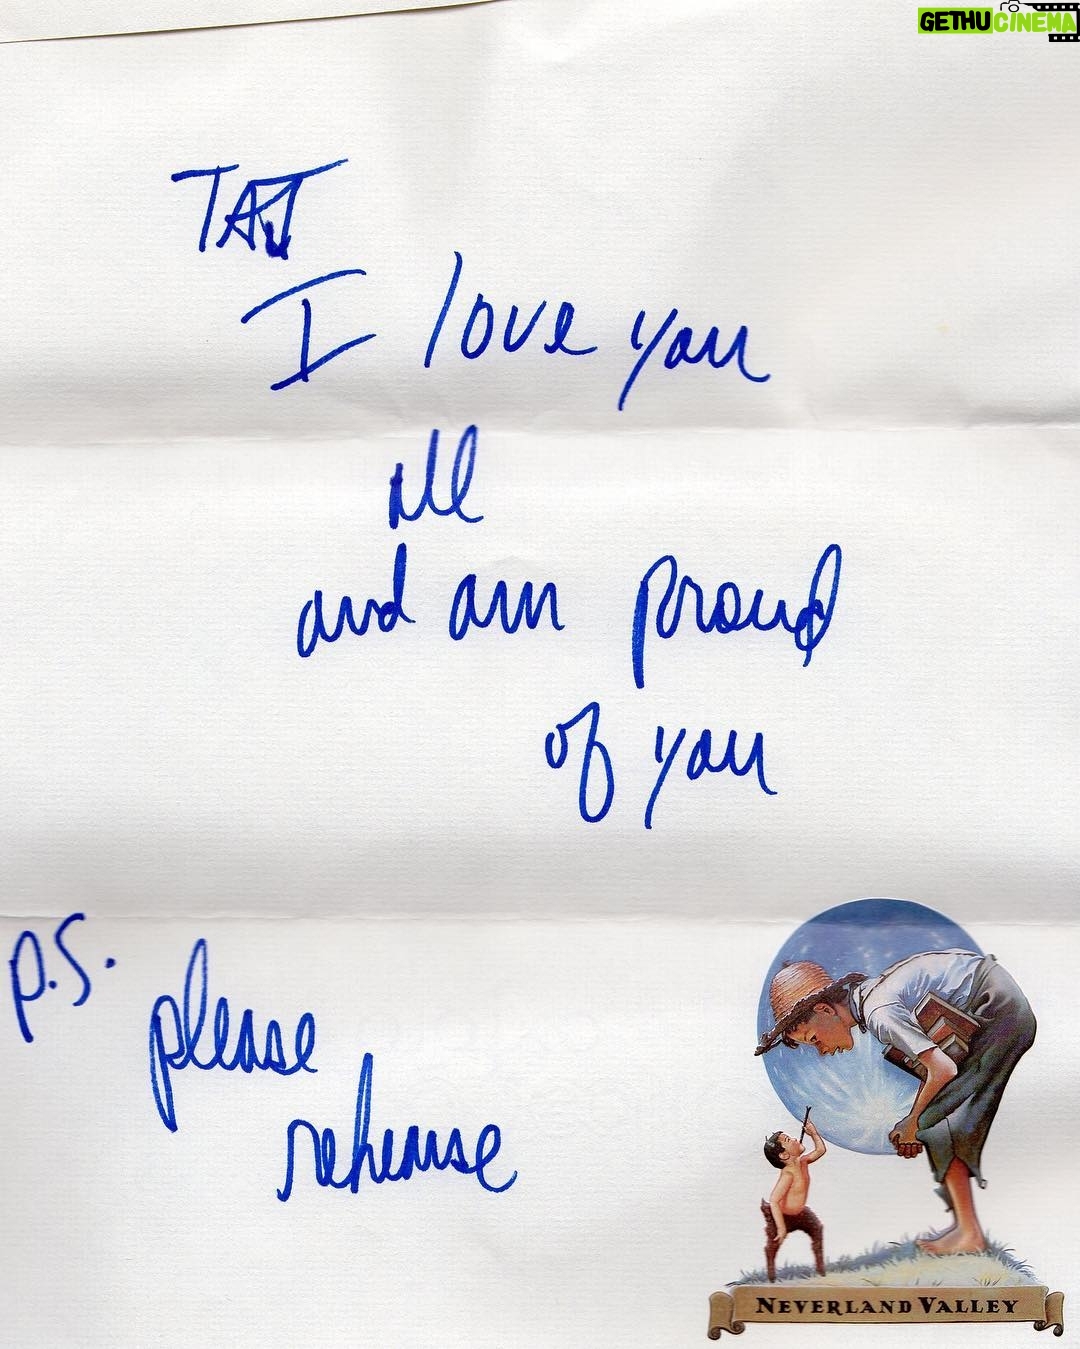 GETHUCINEMA
TAJ
I love you
all
and am proud
of you
p.s.
please
rehearse
NEVERLAND VALLEY